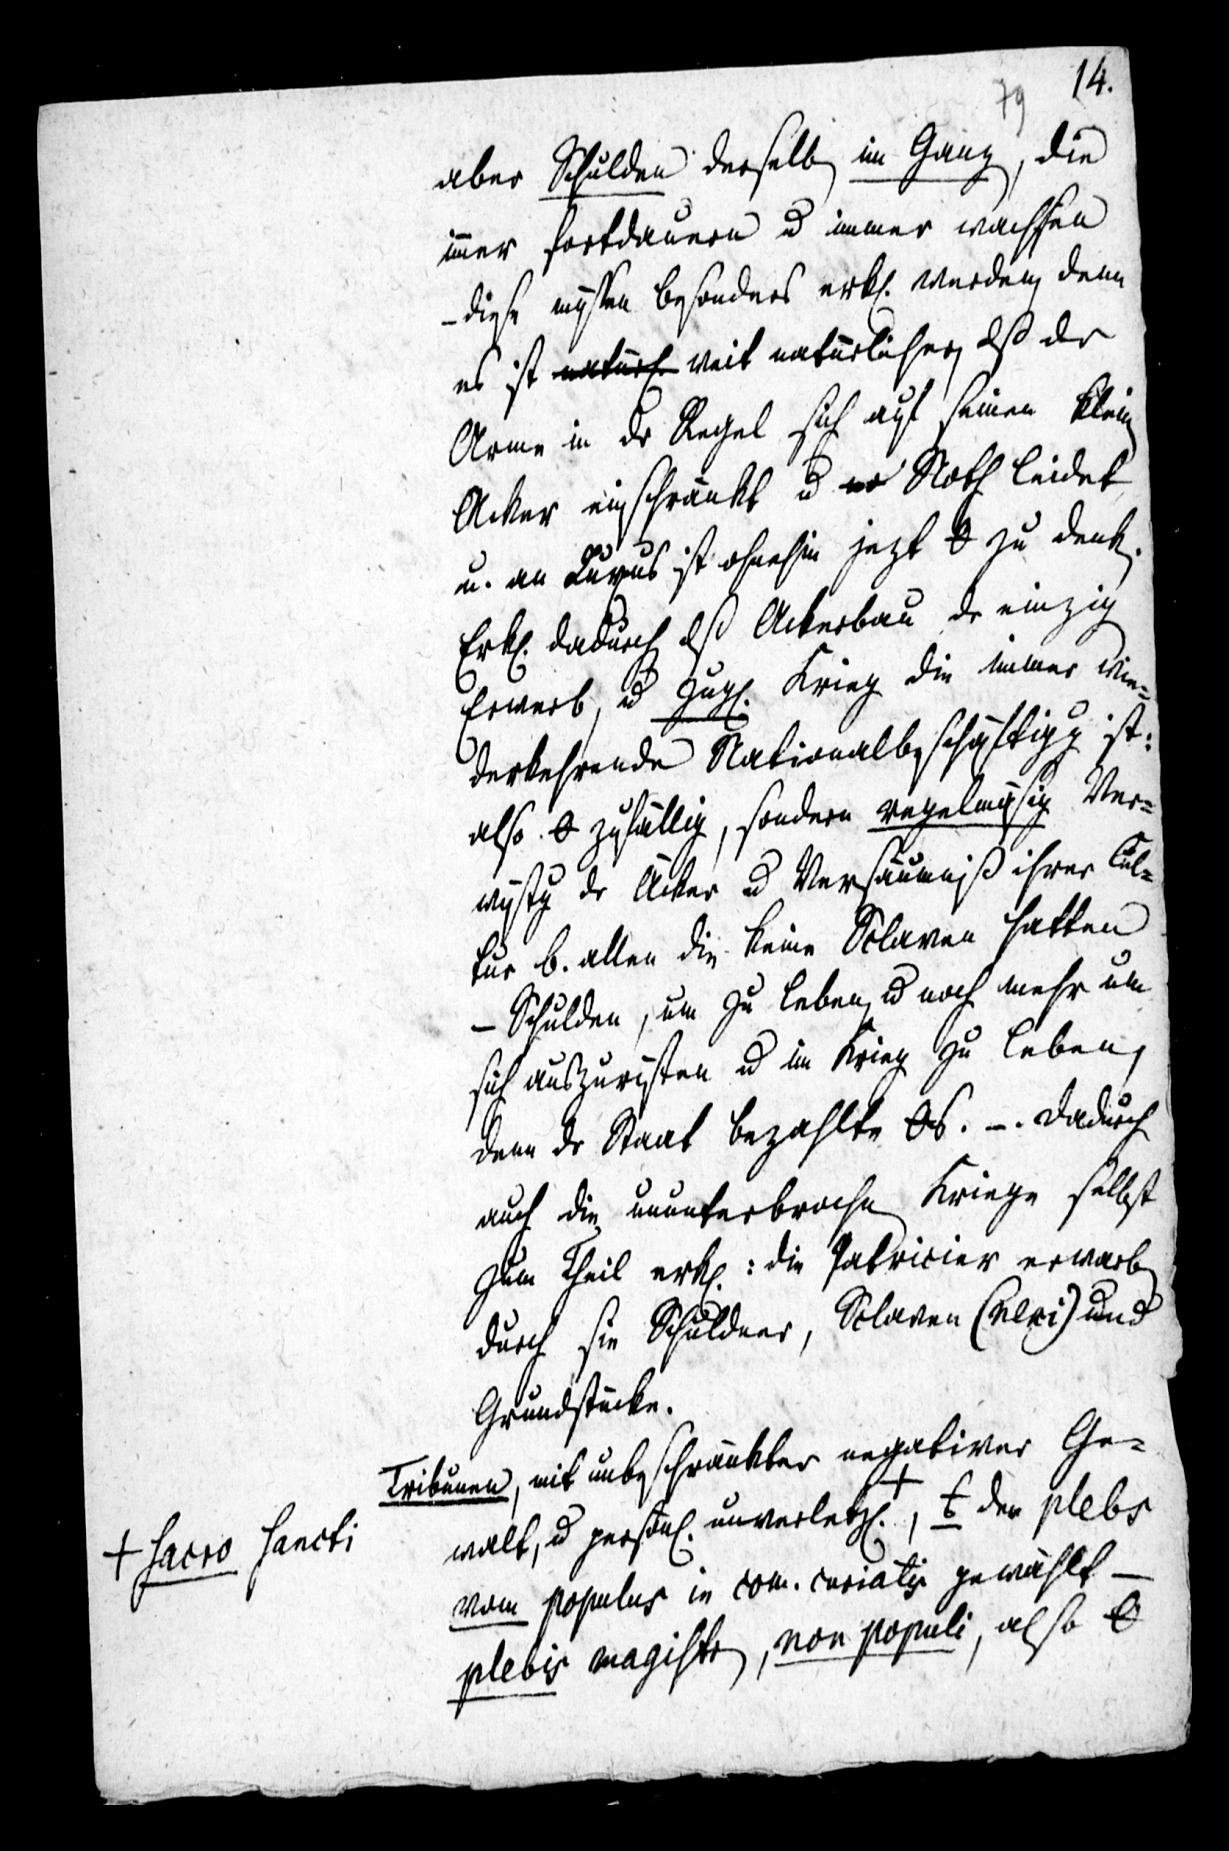 14.
79
aber Schulden derselb im Gang, die
imer fortdauern u immer wachsen
– diese müssen besonders erkl. werden, denn
es ist natürl. weit natürlicher, dß dr
Arme in dr Regel sich auf seinen klein
Acker einschränkt u er Noth leidet
u. an Luxus ist ohnehin jezt θ zu denk.
Erkl. dadurch dß Ackerbau dr einzig
Erwerb, u zugl. Krieg die immer wie=
derkehrende Nationalbeschäftigg ist:
also θ zufällig, sondern regelmäsig Ver=
wüstg dr Äcker u Versäumniß ihrer Cul=
tur b. allen die keine Sclaven hatten
– Schulden, um zu leben, u noch mehr um
sich auszurüsten u im Krieg zu leben,
denn dr Staat bezahlte θs. –. Dadurch
auch die ununterbrochn Kriege selbst
zum Theil erkl.: die Patricier erwarb
durch sie Schuldner, Sclaven (nexi) und
Grundstücke.
Tribunen, mit unbeschränkter negativer Ge=
walt, u persönl. unverletzl. +, f den plebs
vom populus in com. curiatis gewählt –
plebis magistr, non populi, also θ
+ sacro sancti